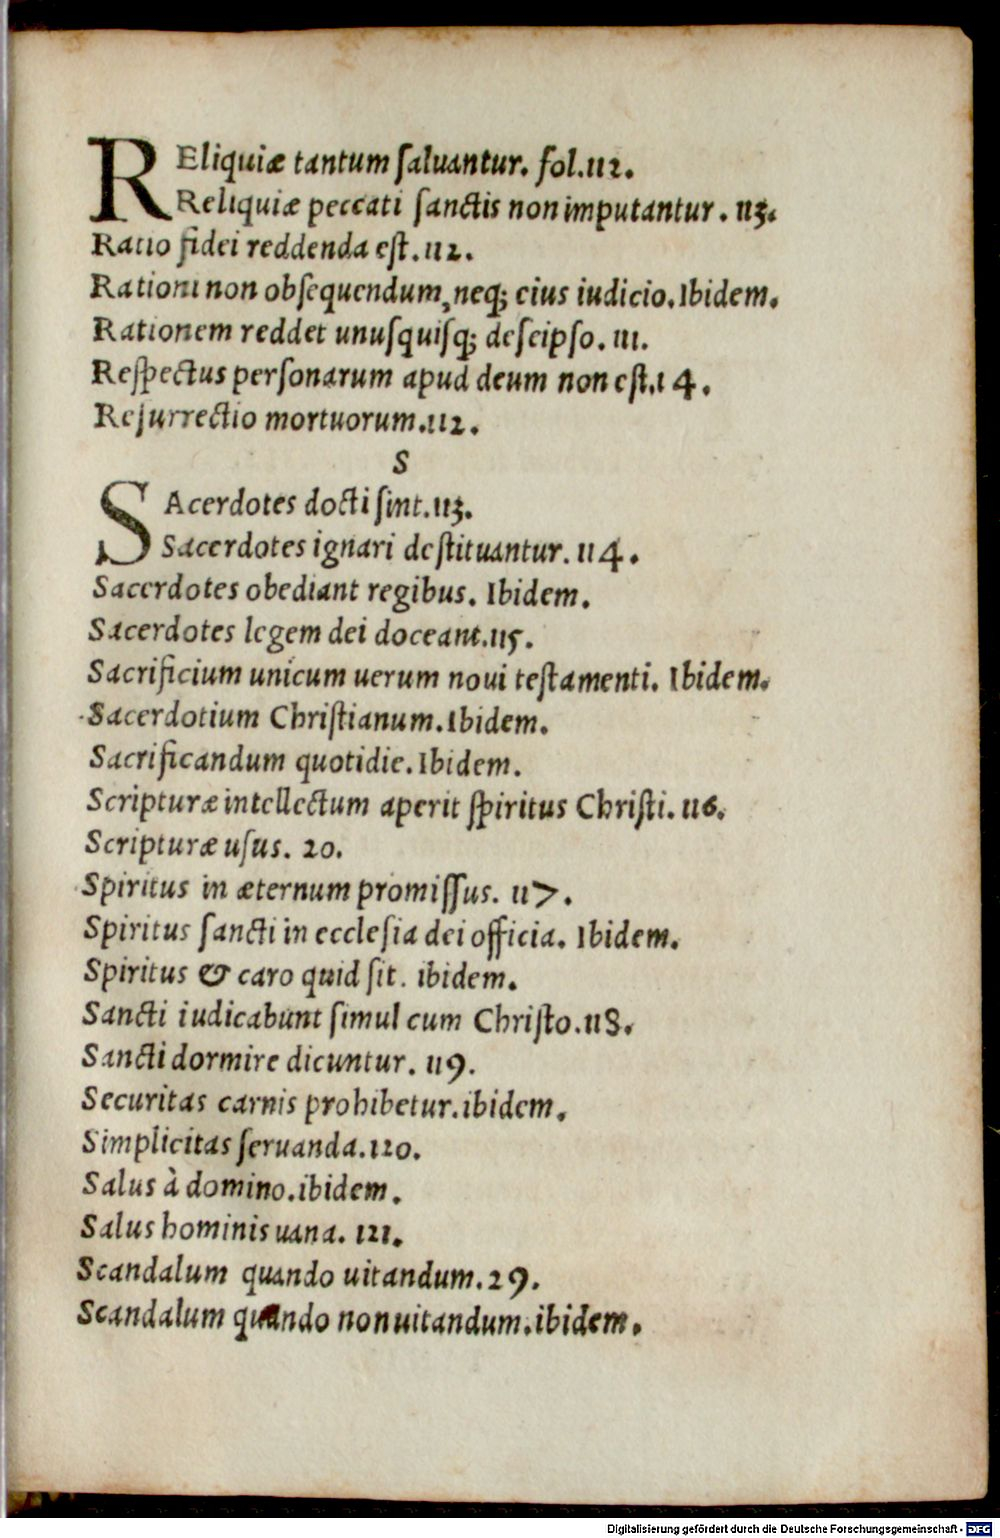 REliquiæ tantum ſaluantur. fol.112.
Reliquiæ peccati ſanctis non imputantur. 113.
Ratio fidei reddenda eſt. 112.
Rationi non obſequendum, neq; eius iudicio. Ibidem.
Rationem reddet unuſquiſq; de ſeipſo. 111.
Reſpectus perſonarum apud deum non eſt. 14.
Reſurrectio mortuorum. 112.
S
SAcerdotes docti ſint. 113.
Sacerdotes ignari deſtituantur. 114.
Sacerdotes obediant regibus. Ibidem.
Sacerdotes legem dei doceant. 115.
Sacrificium unicum uerum noui teſtamenti. Ibidem.
Sacerdotium Chriſtianum. Ibidem.
Sacrificandum quotidie. Ibidem.
Scripturæ intellectum aperit ſpiritus Chriſti. 116.
Scripturæ uſus. 20.
Spiritus in æternum promiſſus. 117.
Spiritus ſancti in eccleſia dei officia. Ibidem.
Spiritus & caro quid ſit. ibidem.
Sancti iudicabunt ſimul cum Chriſto. 118.
Sancti dormire dicuntur. 119.
Securitas carnis prohibetur. ibidem.
Simplicitas ſeruanda. 120.
Salus à domino. ibidem.
Salus hominis uana. 121.
Scandalum quando uitandum. 29.
Scandalum quando non uitandum. ibidem.
Digitalisierung gefördert durch die Deutsche Forschungsgemeinschaft - DFG